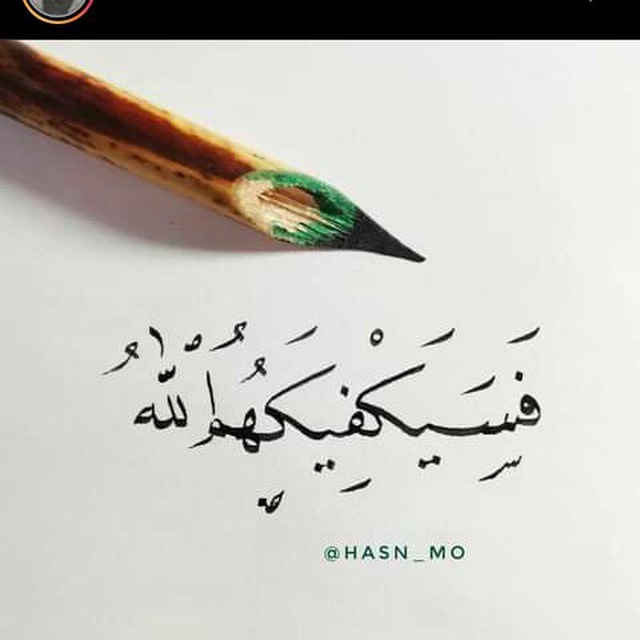 فَسَيَكْفِيكَهُمُ اللَّهُ
@HASN_MO